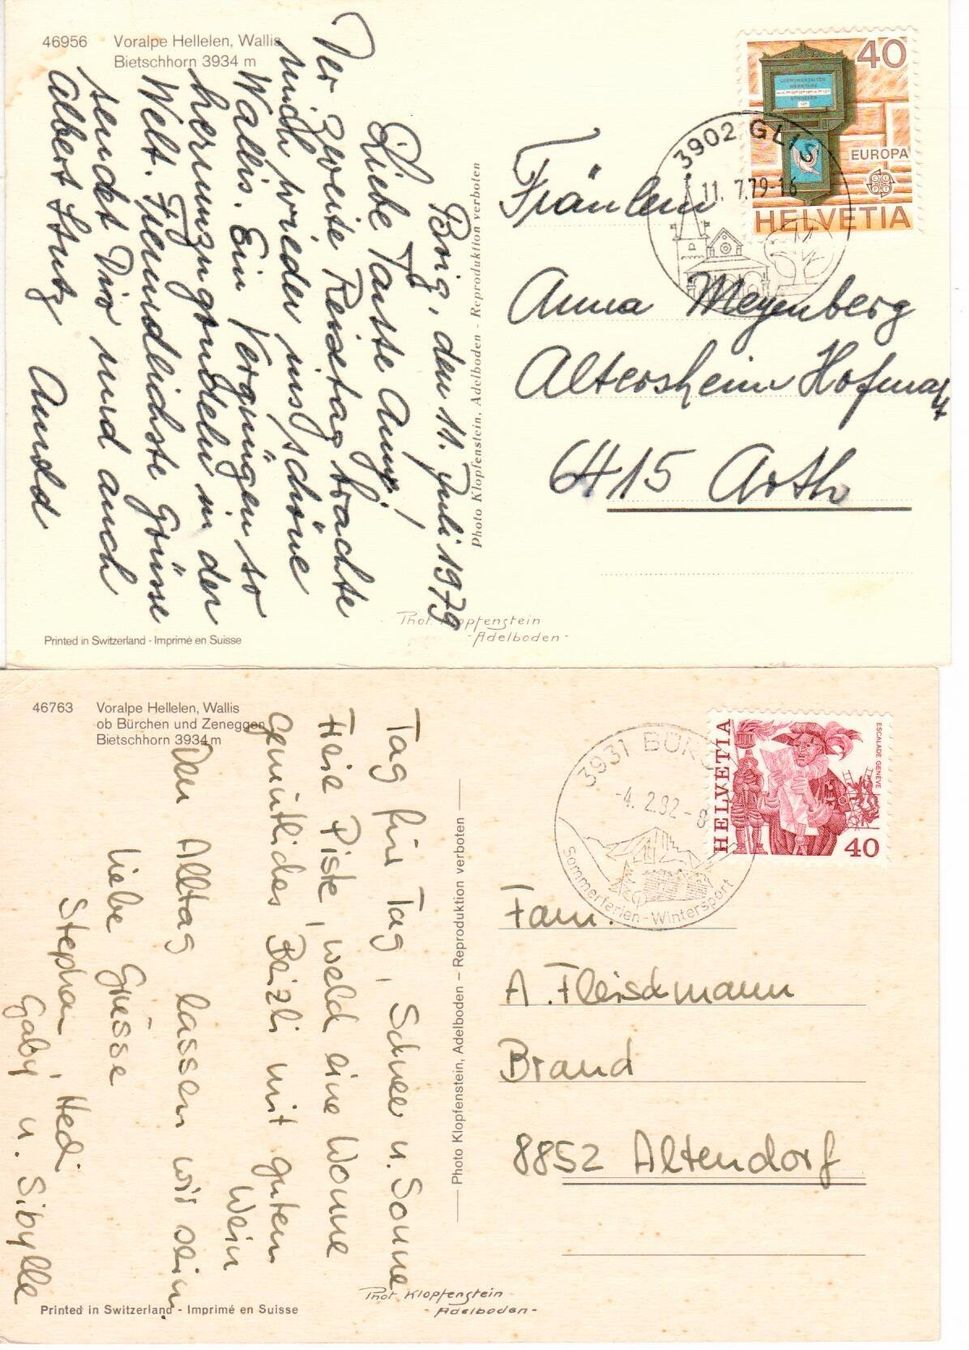 46956 Voralpe Hellelen, Wallis
Bietschhorn 3934 m
Brig, den 11. Juli 1979
Liebe Tante Anny!
Der zweite Reisetag brachte
mich wieder ins schöne
Wallis. Ein Vergnügen so
herumzugondeln in der
Welt. Freundlichste Grüsse
sendet Dir und auch
Albert Stutz
Photo Klopfenstein, Adelboden - Reproduktion verboten
Printed in Switzerland - Imprimé en Suisse
Phot. Klopfenstein
- Adelboden -
40
EUROPA
HELVETIA
3902 GLIS
11. 7.79-16
Fräulein
Anna Meyenberg
Altersheim Hofmatt
6415 Arth
46763 Voralpe Hellelen, Wallis
ob Bürchen und Zeneggen
Bietschhorn 3934 m
Tag für Tag, Schnee u. Sonne
Freie Piste, welch eine Wonne
Gemütliches Beizli mit guten
Wein
Den Alltag lassen wir sein
Liebe Grüsse
Stephan, Hedi
Gaby u. Sibylle
Photo Klopfenstein, Adelboden – Reproduktion verboten
Printed in Switzerland - Imprimé en Suisse
Phot. Klopfenstein
- Adelboden -
HELVETIA
ESCALADE GENÈVE
40
3931 BÜRC
-4. 2.92-8
Sommerferien-Wintersport
Fam.
A. Fleischmann
Brand
8852 Altendorf